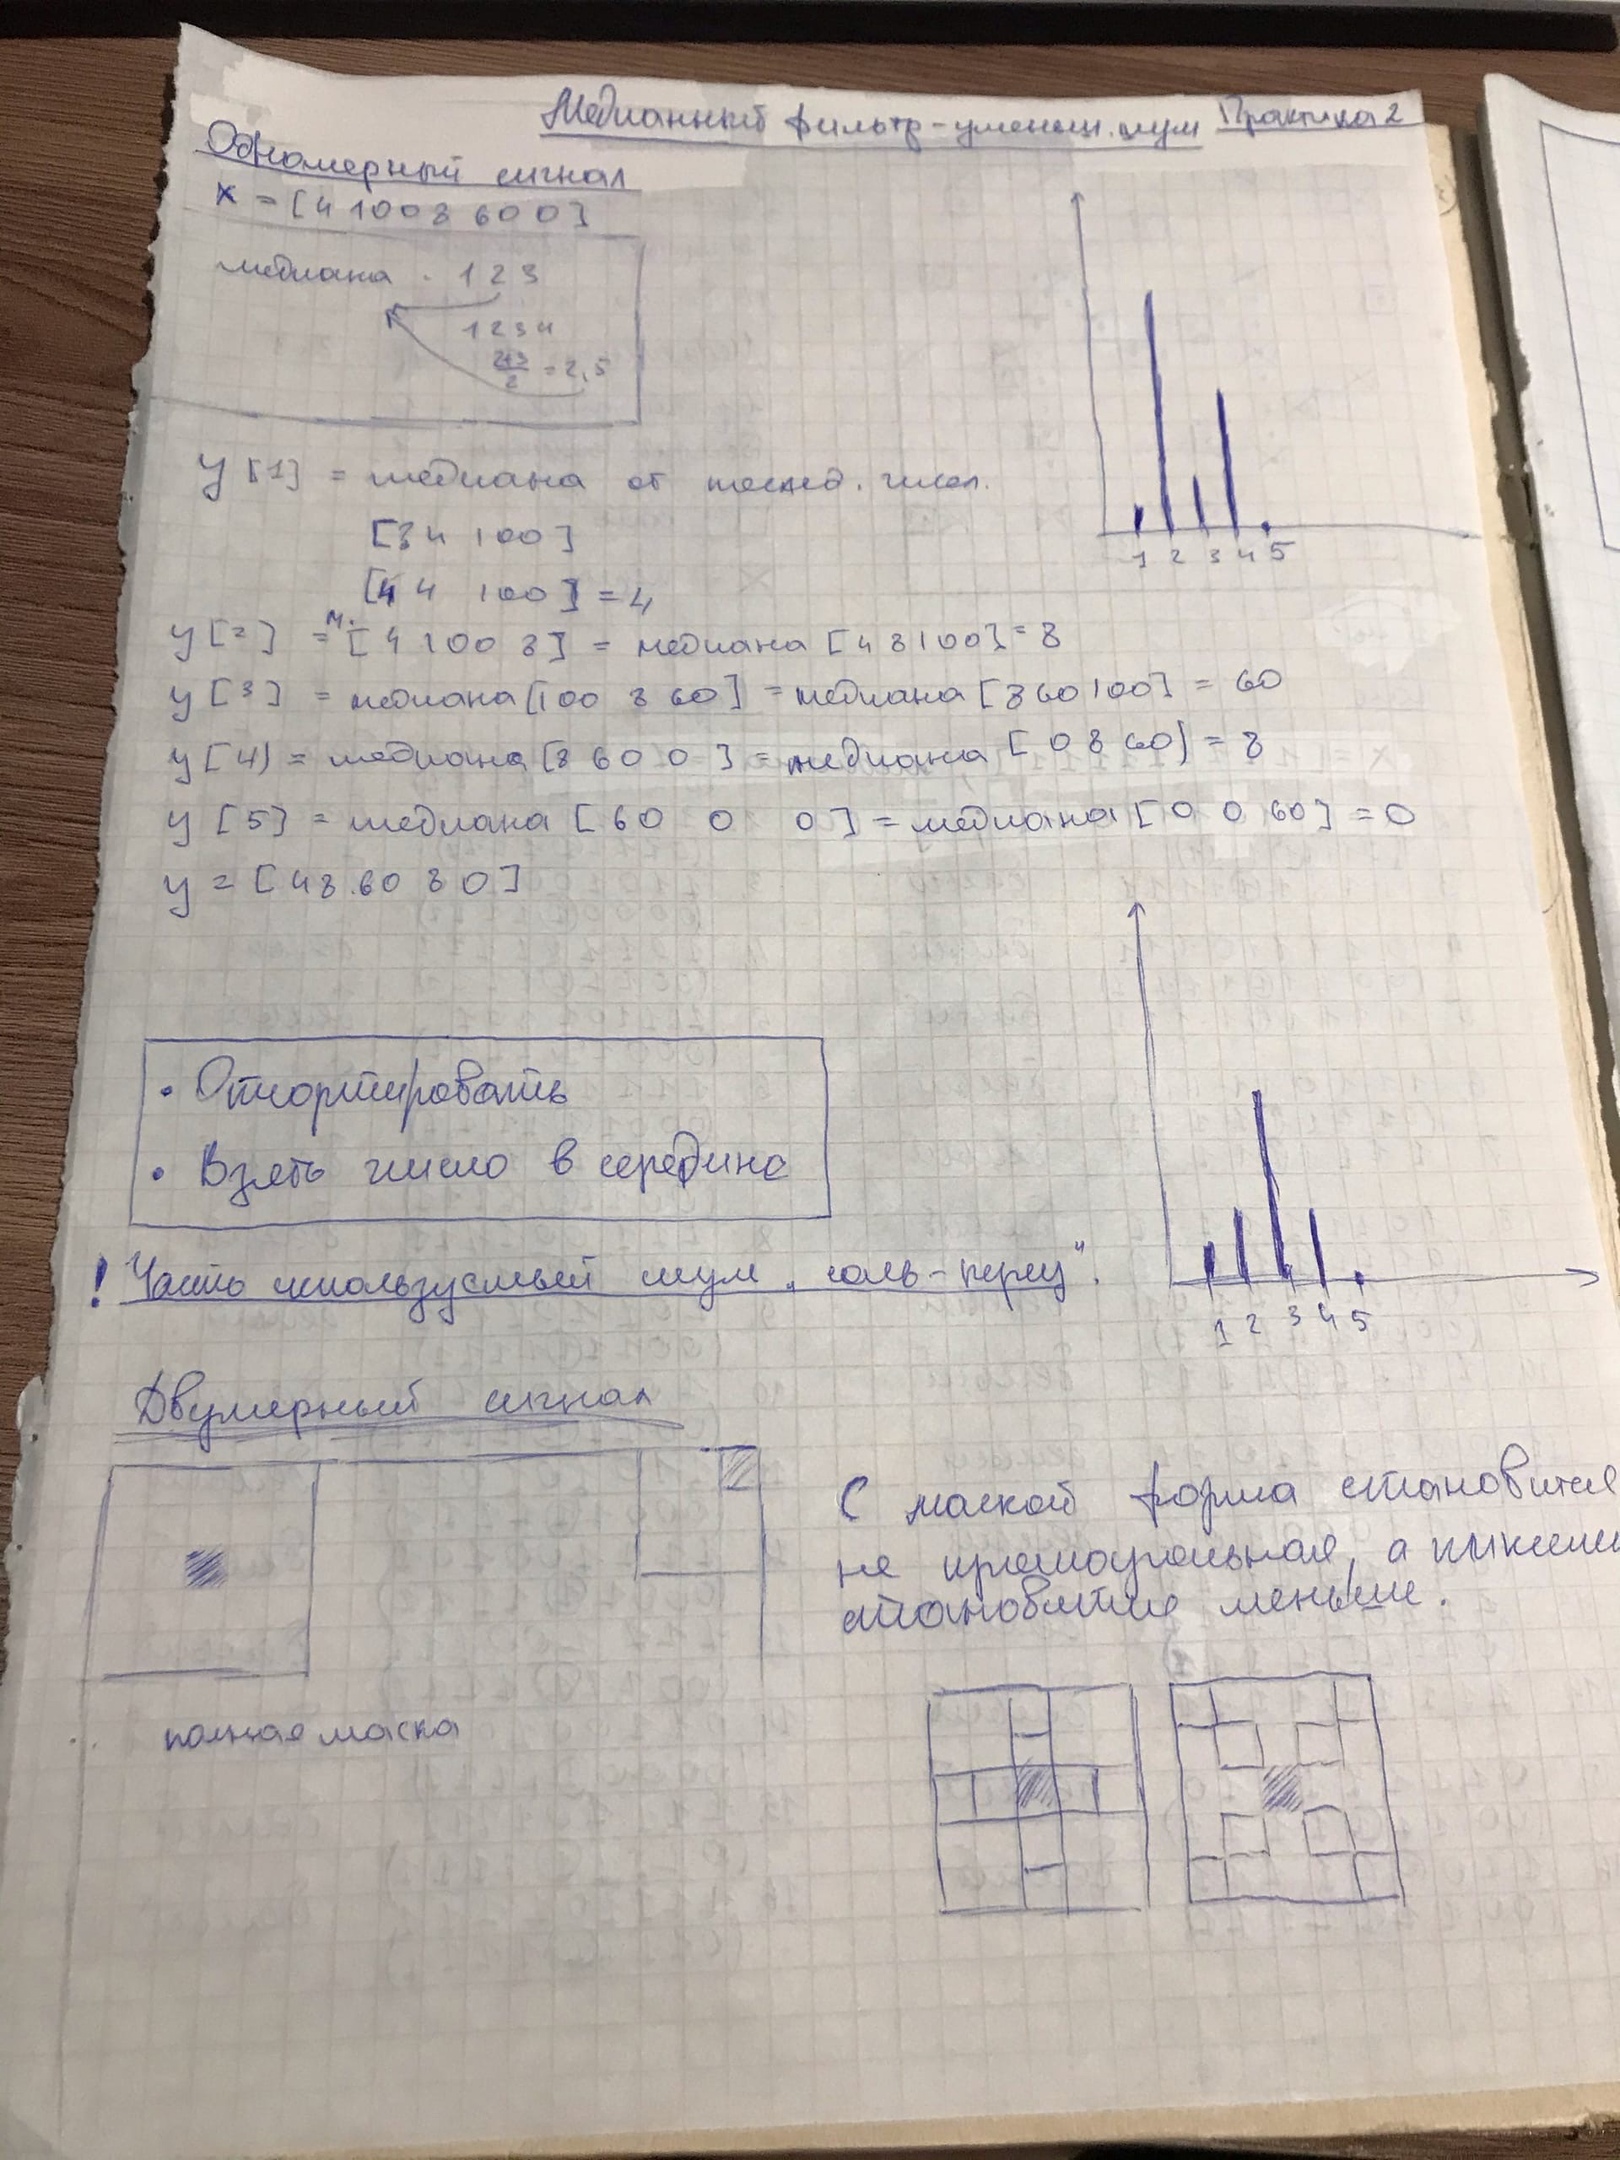 Медианный фильтр - уменьш. шум Практика 2
Одномерный сигнал
x = [4 100 8 60 0]
медиана . 1 2 3
1 2 3 4
2+3/2 = 2,5
y [1] = медиана от послед. чисел.
[8 4 100]
[4 4 100] = 4
y [2] = м. [4 100 8] = медиана [4 8 100] = 8
y [3] = медиана [100 8 60] = медиана [8 60 100] = 60
y [4] = медиана [8 60 0] = медиана [0 8 60] = 8
y [5] = медиана [60 0 0] = медиана [0 0 60] = 0
y = [4 8 60 8 0]
1 2 3 4 5
• Отсортировать
• Взять число в середине
! Часто используемый шум „соль-перец".
1 2 3 4 5
Двумерный сигнал
С маской форма становится
не прямоугольная, а пиксели
становятся меньше.
полная маска